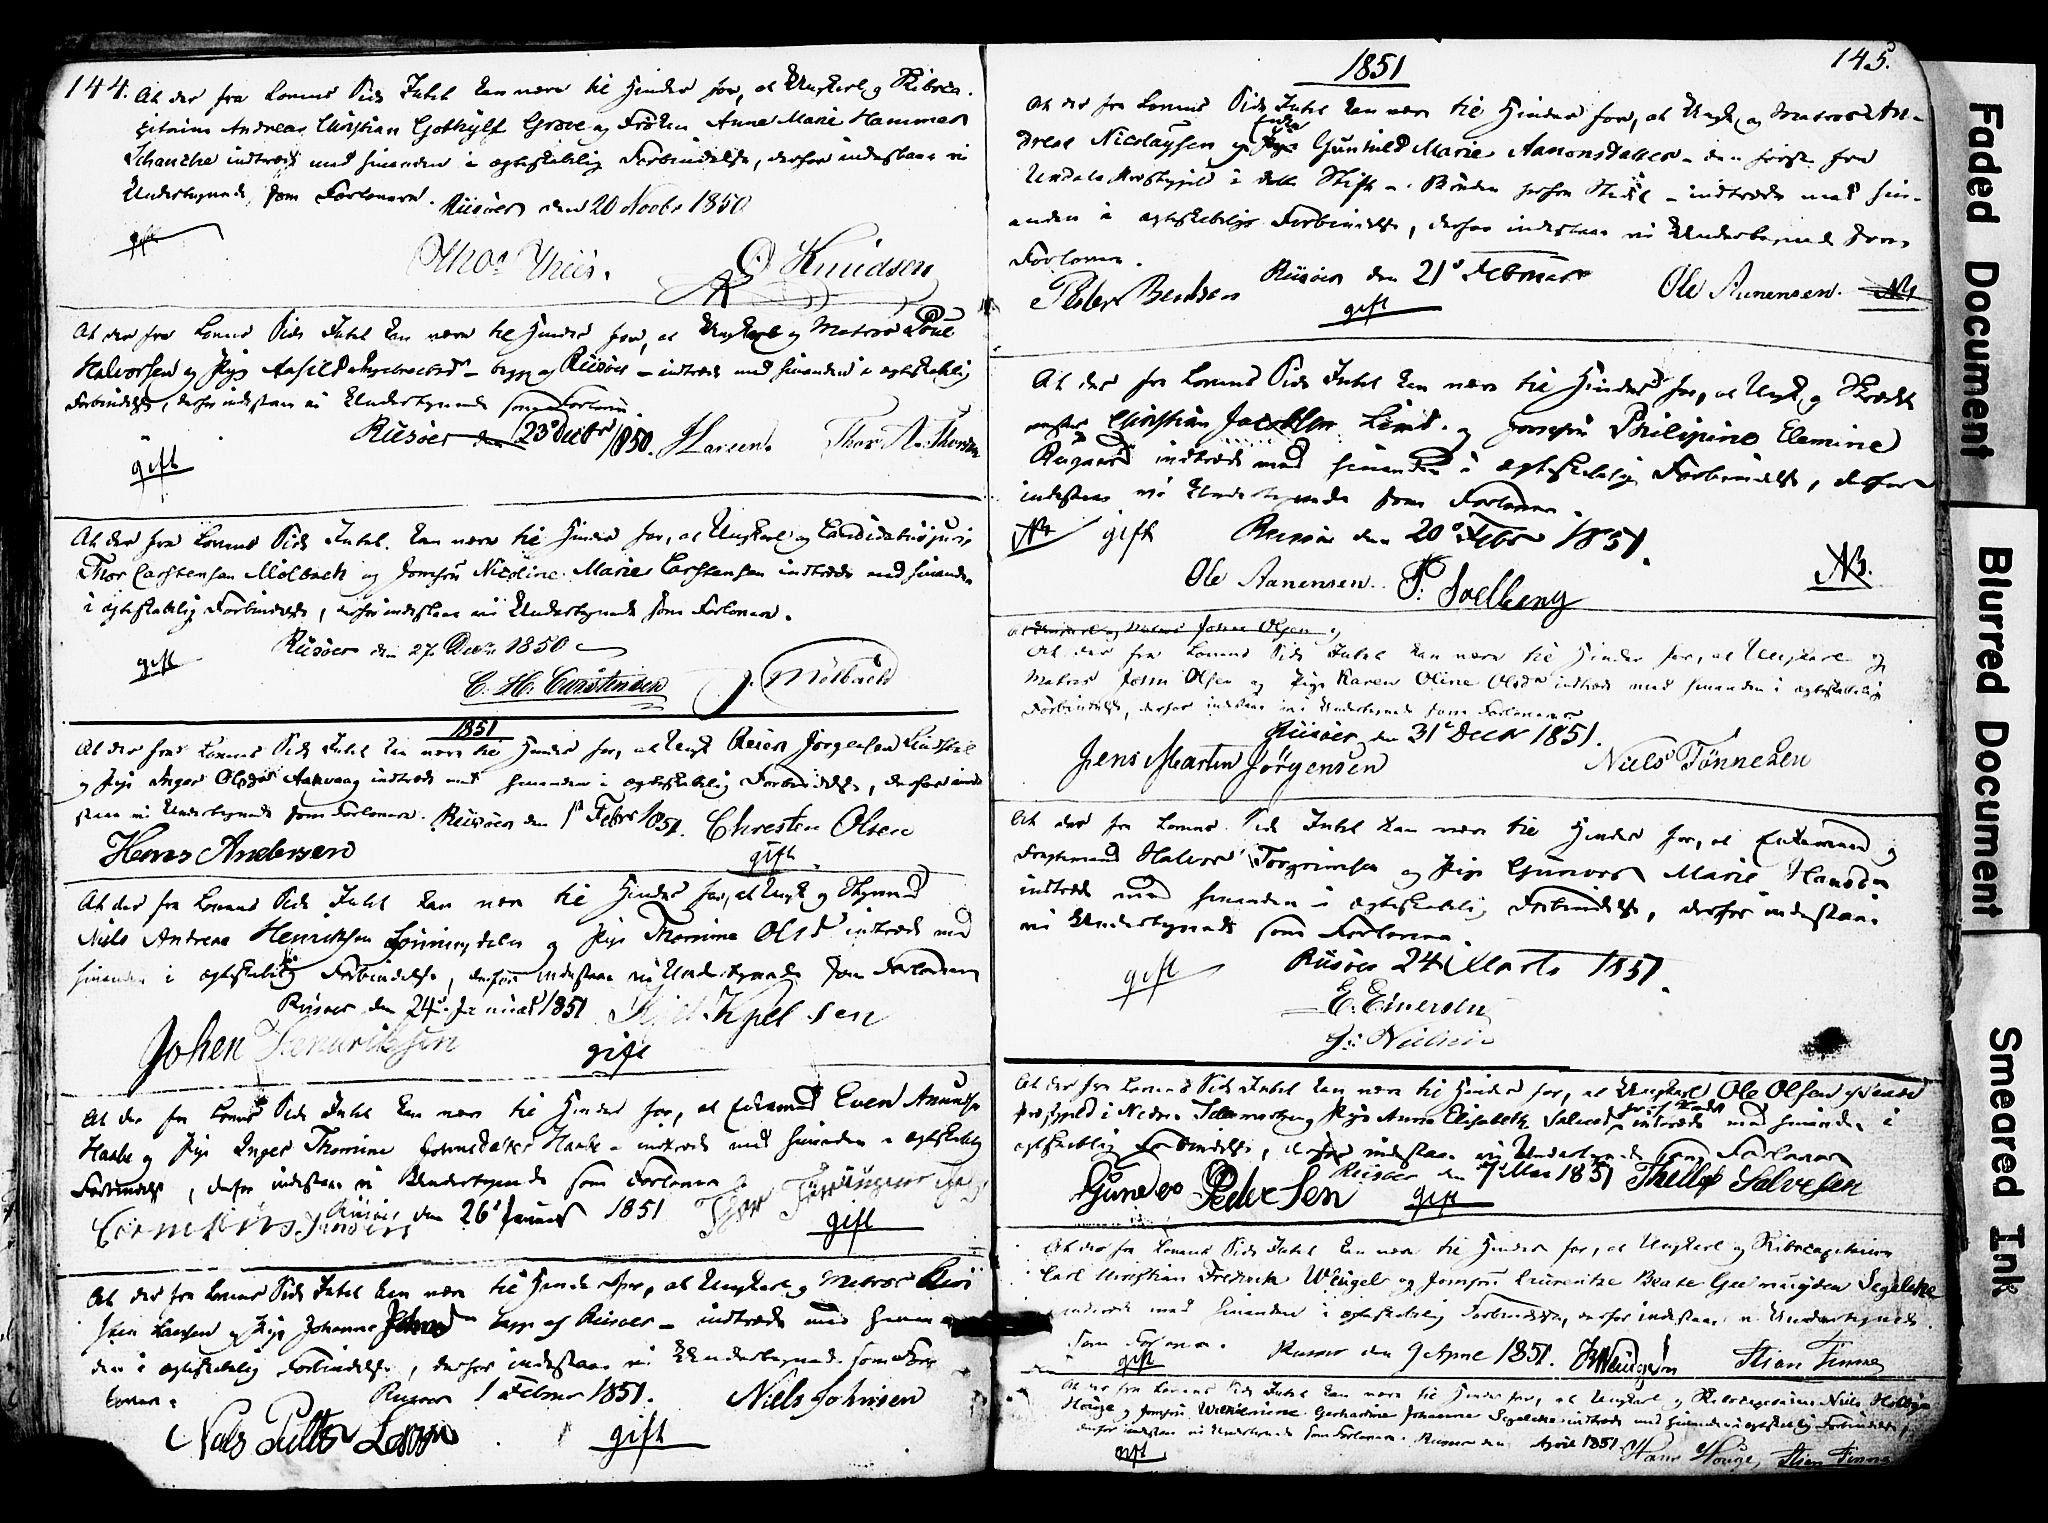 144. At der fra Lovens Side Intet kan være til Hinder for, at Ungkarl og Skibsca-
pitaine Andreas Christian Gothilf Grove og Frøken Anne Marie Hammer
Schanche indtræde med hinanden i ægteskabelig Forbindelse, derfor indestaae vi
Undertegnede som Forlovere. Riisøer den 20 Novbr 1850
gift
Knudsen
At der fra Lovens Side Intet kan være til Hinder for, at Ungkarl og Matros Poul
Halvorsen og Pige Aasild - begge af Riisøer - indtræde med hinanden i ægteskabelig
Forbindelse, derfor indestaae vi Undertegnede som Forlovere.
Riisøer den 23 Decbr 1850. J Larsen. Thor A. Thorsen
gift
At der fra Lovens Side Intet kan være til Hinder for, at Ungkarl og Candidatus juris
Thor Carstensen Mölbach og Jomfru Nicoline Marie Carstensen indtræde med hinanden
i ægteskabelig Forbindelse, derfor indestaae vi Undertegnede som Forlovere.
Riisøer den 27 Decbr 1850
gift
C. H. Carstensen J. Mölbach
1851
At der fra Lovens Side Intet kan være til Hinder for, at Ungk Reier Jørgensen
og Pige Inger Olsdr Aakvaag indtræde med hinanden i ægteskabelig Forbindelse, derfor inde-
staae vi Undertegnede som Forlovere. Riisøer den 1 Febr 1851. Christen Olsen
Hans Andersen
gift
At der fra Lovens Side Intet kan være til Hinder for, at Ungk og
Niels Andreas Henriksen og Pige Thomine Olsdr indtræde med
hinanden i ægteskabelig Forbindelse, derfor indestaae vi Undertegnede som Forlovere
Riisøer den 24 Januar 1851
Johen Hendriksen
gift
At der fra Lovens Side Intet kan være til Hinder for, at Enkemand Even
og Pige Inger Thomine - indtræde med hinanden i ægteskabelig
Forbindelse, derfor indestaae vi Undertegnede som Forlovere
Riisøer den 26 Januar 1851
gift
At der fra Lovens Side Intet kan være til Hinder for, at Ungkarl og Matros
Larsen og Pige Johanne - begge af Riisøer - indtræde med hinan-
den i ægteskabelig Forbindelse, derfor indestaae vi Undertegnede som For-
lovere.
Riisøer 1 Februar 1851. Niels Johnsen
gift
1851
145.
At der fra Lovens Side Intet kan være til Hinder for, at Ungk og Matros An-
dreas Nicolaysen og Pige Gunhild Marie Aanonsdatter - den første fra
Undals Præstegjeld i dette Stift - Bruden her fra Stedet - indtræde med hin-
anden i ægteskabelig Forbindelse, derfor indestaae vi Undertegnede som
Forlovere.
Peder Bentsen Riisøer den 21 Februar Ole Aanensen.
gift
At der fra Lovens Side Intet kan være til Hinder for, at Ungk og Skrædder-
mester Christian Jacobsen Lind og Jomfru Philipine Elemine
indtræde med hinanden i ægteskabelig Forbindelse, derfor
indestaae vi Undertegnede som Forlovere.
gift Riisøer den 20 Febr 1851.
Ole Aanensen P. Soelberg
NB.
At Ungkarl og Matros John Olsen og
At der fra Lovens Side Intet kan være til Hinder for, at Ungkarl og
Matros John Olsen og Pige Karen Oline Olsdr indtræde med hinanden i ægteskabelig
Forbindelse, derfor indestaae vi Undertegnede som Forlovere
Riisøer den 31 Decbr 1851.
Jens Martin Jörgensen Niels Tönnesen
At der fra Lovens Side Intet kan være til Hinder for, at Enkemand og
Halvor Torgrimsen og Pige Gunvor Marie Hansdr
indtræde med hinanden i ægteskabelig Forbindelse, derfor indestaae
vi Undertegnede som Forlovere.
Riisøer 24 Marts 1851.
gift
E. Einersen
J. Nielsen
At der fra Lovens Side Intet kan være til Hinder for, at Ungkarl Ole Olsen
Præstegjeld i Nedre Telemarken og Pige Anne Elisabeth indtræde med hinanden i
ægteskabelig Forbindelse, derfor indestaae vi Undertegnede som Forlovere
Riisøer den Mai 1851 Thellef Salvesen
Gunder Pedersen gift
At der fra Lovens Side Intet kan være til Hinder for, at Ungkarl og Skibscapitaine
Carl Christian Fredrick Wengel og Jomfru Laurentze Beate Segelcke
indtræde med hinanden i ægteskabelig Forbindelse, derfor indestaae vi Undertegnede
som Forlovere. Riisøer den 9 April 1851. Stian Finne
gift
At der fra Lovens Side Intet kan være til Hinder for, at Ungkarl og Skibscapitaine Niels
Houge og Jomfru Wilhelmine Gerhardine Johanne Segelcke indtræde med hinanden i ægteskabelig Forbindelse,
derfor indestaae vi Undertegnede som Forlovere. Riisøer den April 1851
gift Hans Houge, Stian Finne
Faded Document
Blurred Document
Smeared Ink